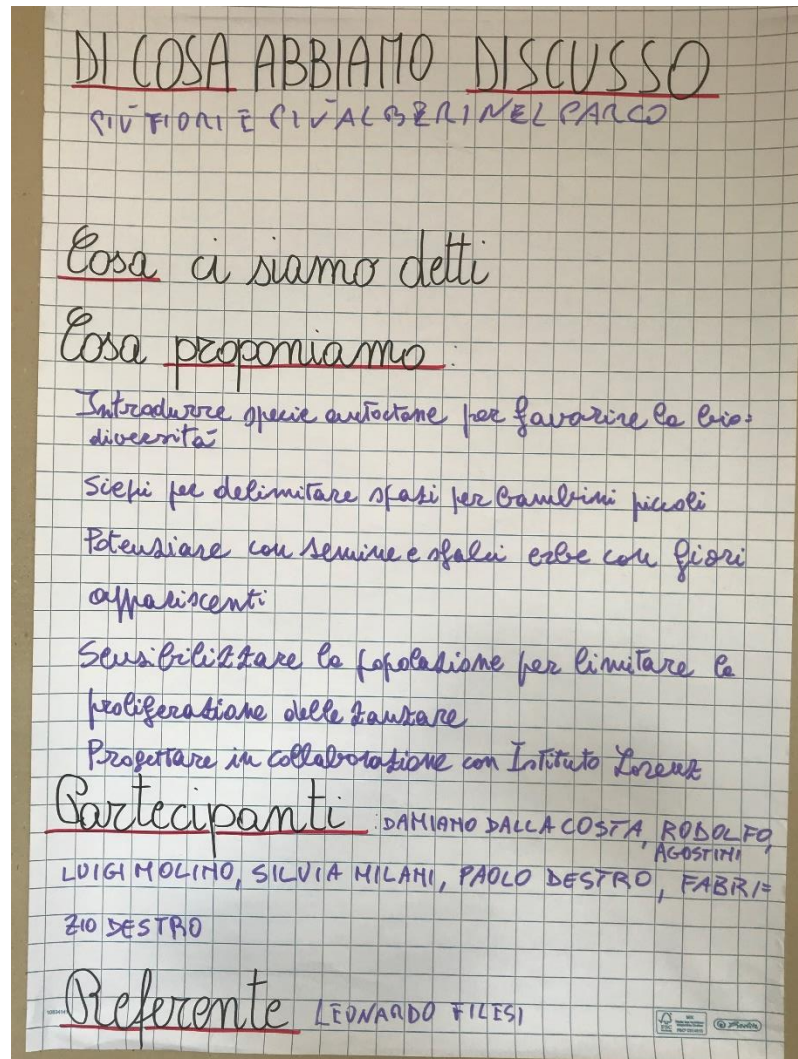 DI COSA ABBIAMO DISCUSSO
PIÙ FIORI E PIÙ ALBERI NEL PARCO
Cosa ci siamo detti
Cosa proponiamo:
Introdurre specie autoctone per favorire la bio=
diversità
Siepi per delimitare spazi per bambini piccoli
Potenziare con semine e sfalci erbe con fiori
appariscenti
Sensibilizzare la popolazione per limitare la
proliferazione delle zanzare
Progettare in collaborazione con Istituto Lorenz
Partecipanti: DAMIANO DALLA COSTA, RODOLFO
AGOSTINI,
LUIGI MOLINO, SILVIA MILANI, PAOLO DESTRO, FABRI=
ZIO DESTRO
Referente LEONARDO FILESI
FSC